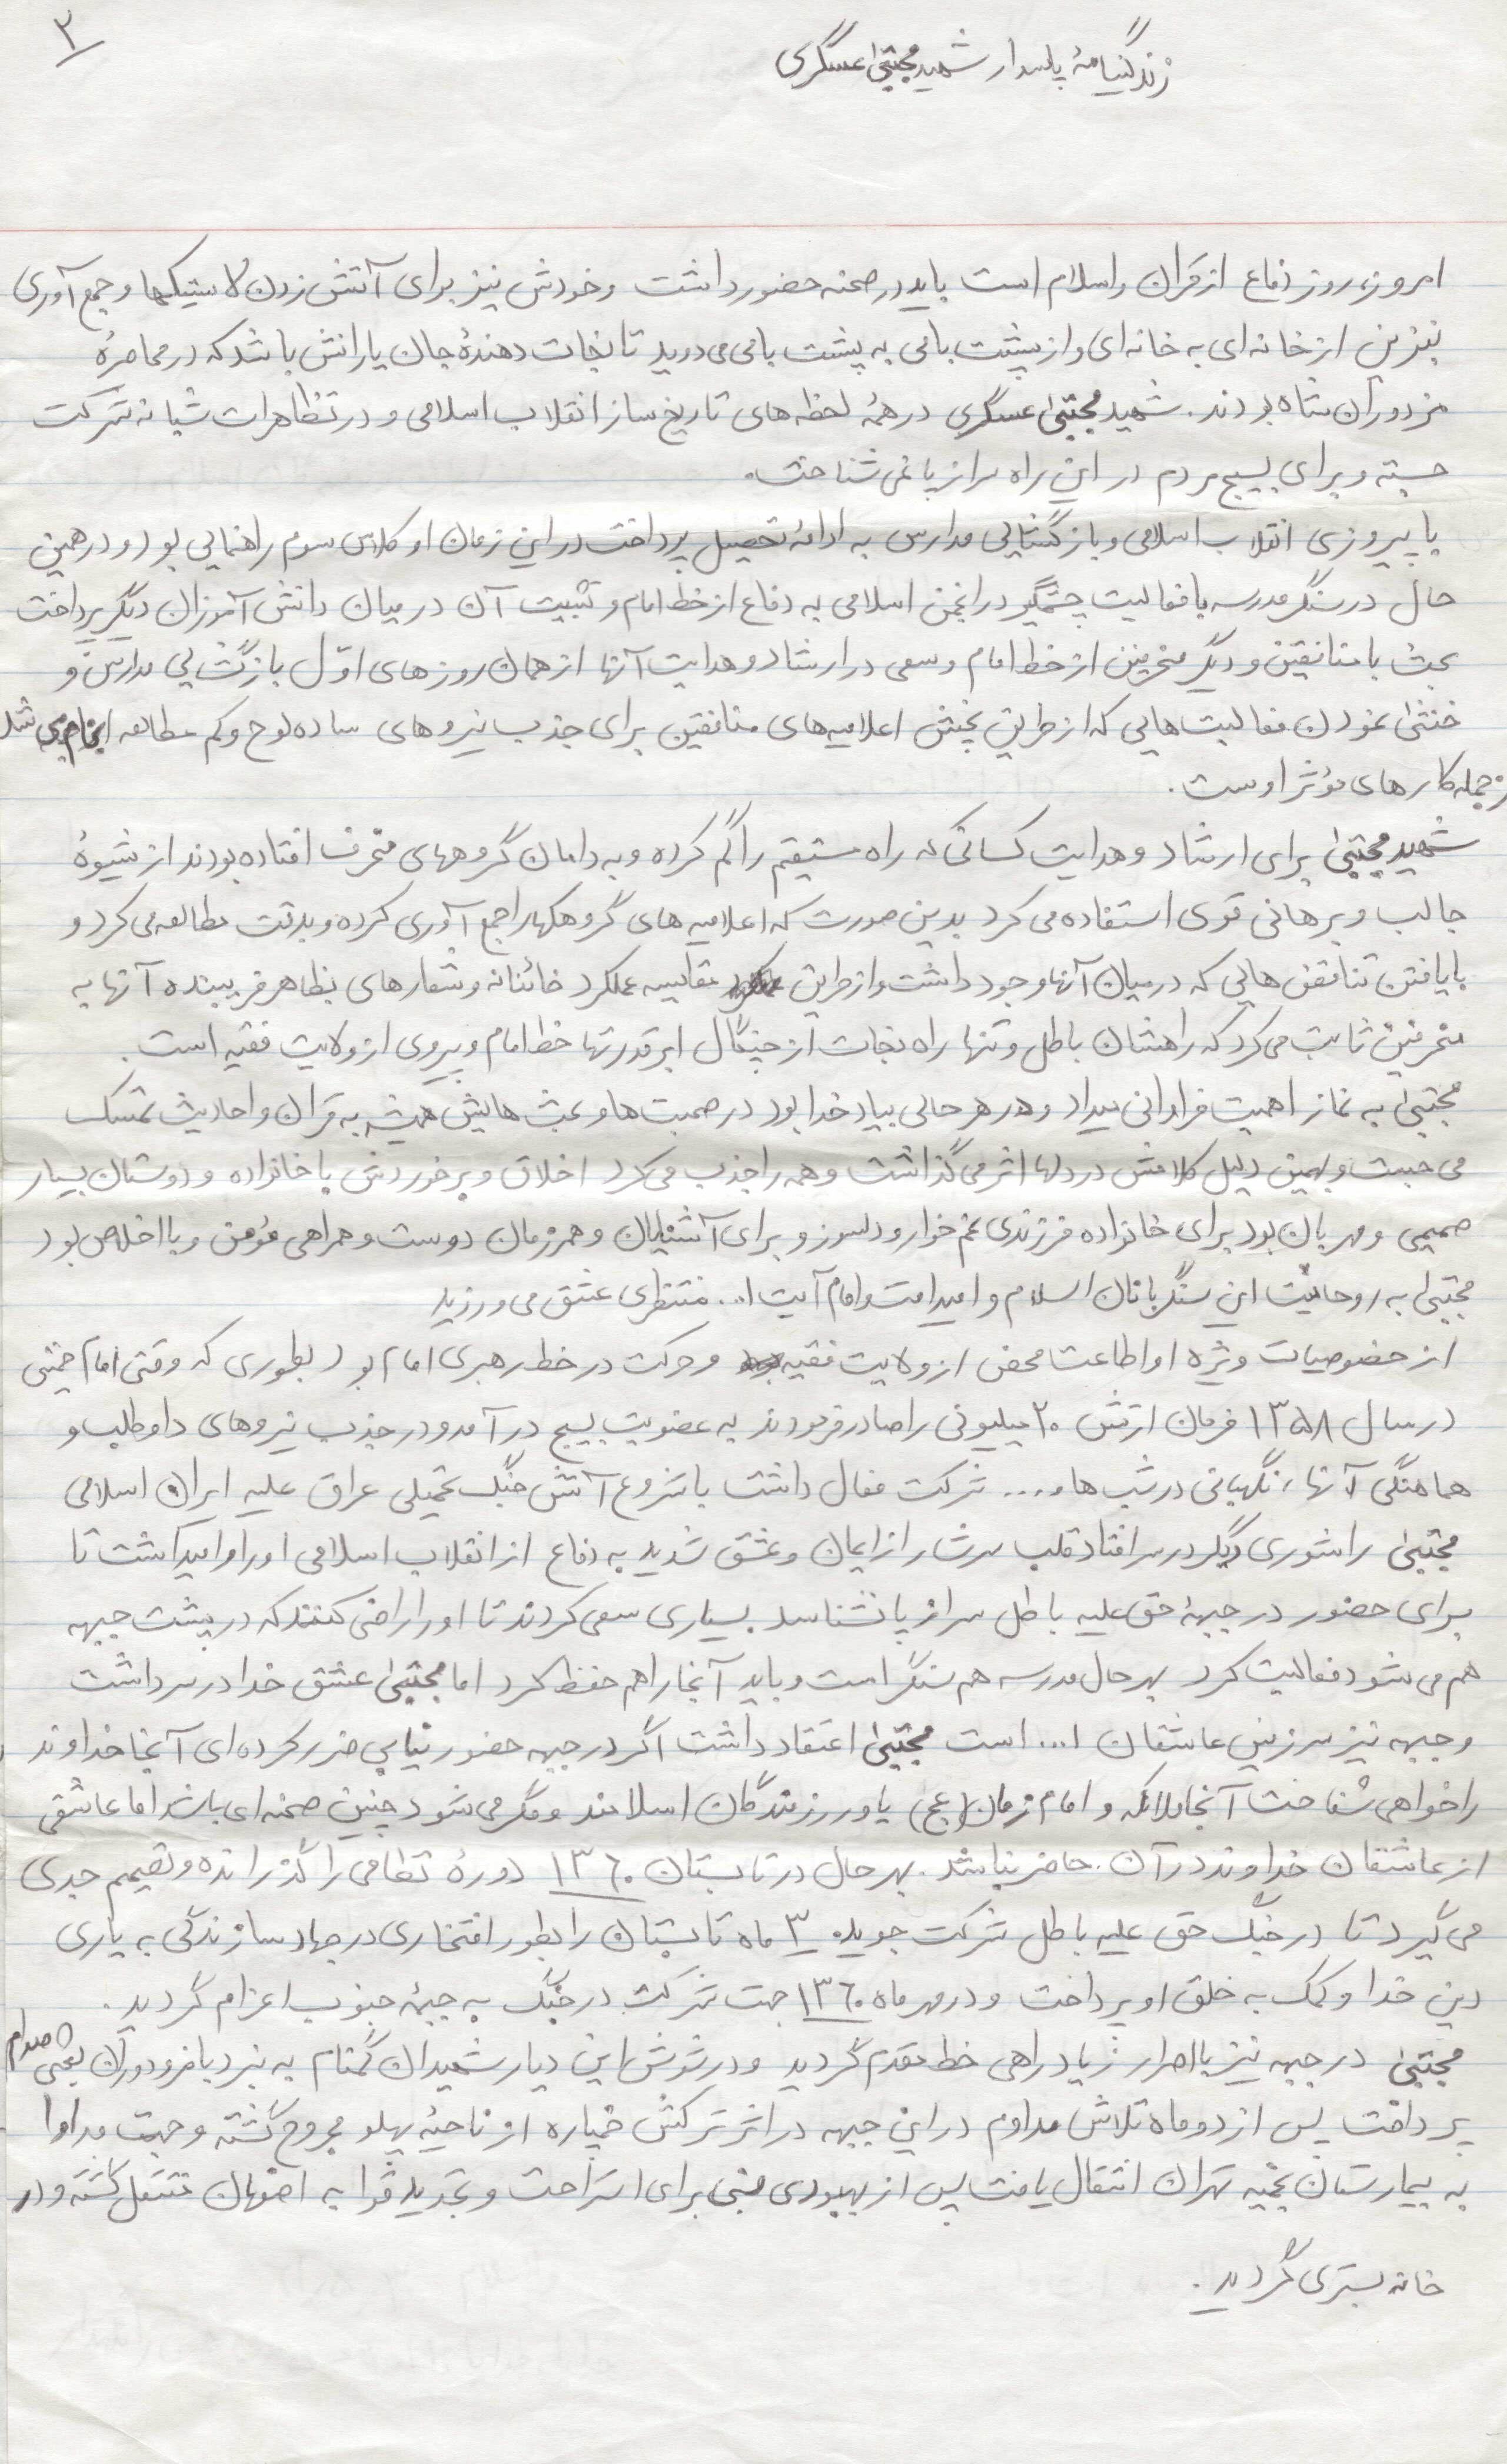 ۳
زندگینامهٔ پاسدار شهید مجتبیٰ عسگری
امروز، روز دفاع از قرآن و اسلام است باید در صحنه حضور داشت و خودش نیز برای آتش زدن لاستیکها و جمع آوری
بنزین از خانه ای به خانه ای و از پشت بامی به پشت بامی می دوید تا نجات دهندهٔ جان یارانش باشد که در محاصرهٔ
مزدوران شاه بودند. شهید مجتبیٰ عسگری در همهٔ لحظه های تاریخ ساز انقلاب اسلامی و در تظاهرات شبانه شرکت
جسته و برای بسیج مردم در این راه سر از پا نمی شناخت.
با پیروزی انقلاب اسلامی و بازگشایی مدارس به ادامهٔ تحصیل پرداخت در این زمان او کلاس سوم راهنمایی بود و در همین
حال در سنگر مدرسه با فعالیت چشمگیر در انجمن اسلامی به دفاع از خط امام و تثبیت آن در میان دانش آموزان دیگر پرداخت
بحث با منافقین و دیگر منحرفین از خط امام و سعی در ارشاد و هدایت آنها از همان روزهای اوّل بازگشایی مدارس و
خنثیٰ نمودن فعالیت هایی که از طریق پخش اعلامیه های منافقین برای جذب نیروهای ساده لوح و کم مطالعه انجام می شد
از جمله کارهای مؤثر اوست.
شهید مجتبیٰ برای ارشاد و هدایت کسانی که راه مستقیم را گم کرده و به دامان گروههای منحرف افتاده بودند از شیوهٔ
جالب و برهانی قوی استفاده می کرد بدین صورت که اعلامیه های گروهکها را جمع آوری کرده و بدقت مطالعه می کرد و
با یافتن تناقض هایی که در میان آنها وجود داشت و از طریق مقایسه عملکرد خائنانه و شعارهای بظاهر فریبنده آنها به
منحرفین ثابت می کرد که راهشان باطل و تنها راه نجات از چنگال ابرقدرتها خط امام و پیروی از ولایت فقیه است.
مجتبیٰ به نماز اهمیت فراوانی میداد و در هر حالی بیاد خدا بود در صحبت ها و بحث هایش همیشه به قرآن و احادیث تمسک
می جست و بهمین دلیل کلامش در دلها اثر می گذاشت و همه را جذب می کرد اخلاق و برخوردش با خانواده و دوستان بسیار
صمیمی و مهربان بود برای خانواده فرزندی غم خوار و دلسوز و برای آشنایان و همرزمان دوست و همراهی مؤمن و با اخلاص بود
مجتبیٰ به روحانیت این سنگربانان اسلام و امید امت و امام آیت ا... منتظری عشق می ورزید
از خصوصیات ویژه او اطاعت محض از ولایت فقیه و حرکت در خط رهبری امام بود بطوری که وقتی امام خمینی
در سال ۱۳۵۸ فرمان ارتش ۲۰ میلیونی را صادر فرمودند به عضویت بسیج در آمد و در جذب نیروهای داوطلب و
هماهنگی آنها، نگهبانی در شب ها و .... شرکت فعال داشت با شروع آتش جنگ تحمیلی عراق علیه ایران اسلامی
مجتبیٰ را شوری دیگر در سر افتاد قلب سرشار از ایمان و عشق شدید به دفاع از انقلاب اسلامی او را وامیداشت تا
برای حضور در جبههٔ حق علیه باطل سر از پا نشناسد بسیاری سعی کردند تا او را راضی کنند که در پشت جبهه
هم می شود فعالیت کرد بهر حال مدرسه هم سنگر است و باید آنجا را هم حفظ کرد اما مجتبیٰ عشق خدا در سر داشت
و جبهه نیز سرزمین عاشقان ا... است مجتبیٰ اعتقاد داشت اگر در جبهه حضور نیابی ضرر کرده ای آنجا خداوند
را خواهی شناخت آنجا ملائکه و امام زمان (عج) یاور رزمندگان اسلامند و مگر می شود چنین صحنه ای باشد اما عاشقی
از عاشقان خداوند در آن حاضر نباشد. بهر حال در تابستان ۱۳۶۰ دورهٔ نظامی را گذرانده و تصمیم جدی
می گیرد تا در جنگ حق علیه باطل شرکت جوید. ۳ ماه تابستان را بطور افتخاری در جهاد سازندگی به یاری
دین خدا و کمک به خلق او پرداخت و در مهر ماه ۱۳۶۰ جهت شرکت در جنگ به جبههٔ جنوب اعزام گردید.
مجتبیٰ در جبهه نیز با اصرار زیاد راهی خط مقدم گردید و در شوش این دیار شهیدان گمنام به نبرد با مزدوران بعثی صدام
پرداخت پس از دو ماه تلاش مداوم در این جبهه در اثر ترکش خمپاره از ناحیهٔ پهلو مجروح گشته و جهت مداوا
به بیمارستان نجمیه تهران انتقال یافت پس از بهبودی نسبی برای استراحت و تجدید قوا به اصفهان منتقل گشته و در
خانه بستری گردید.